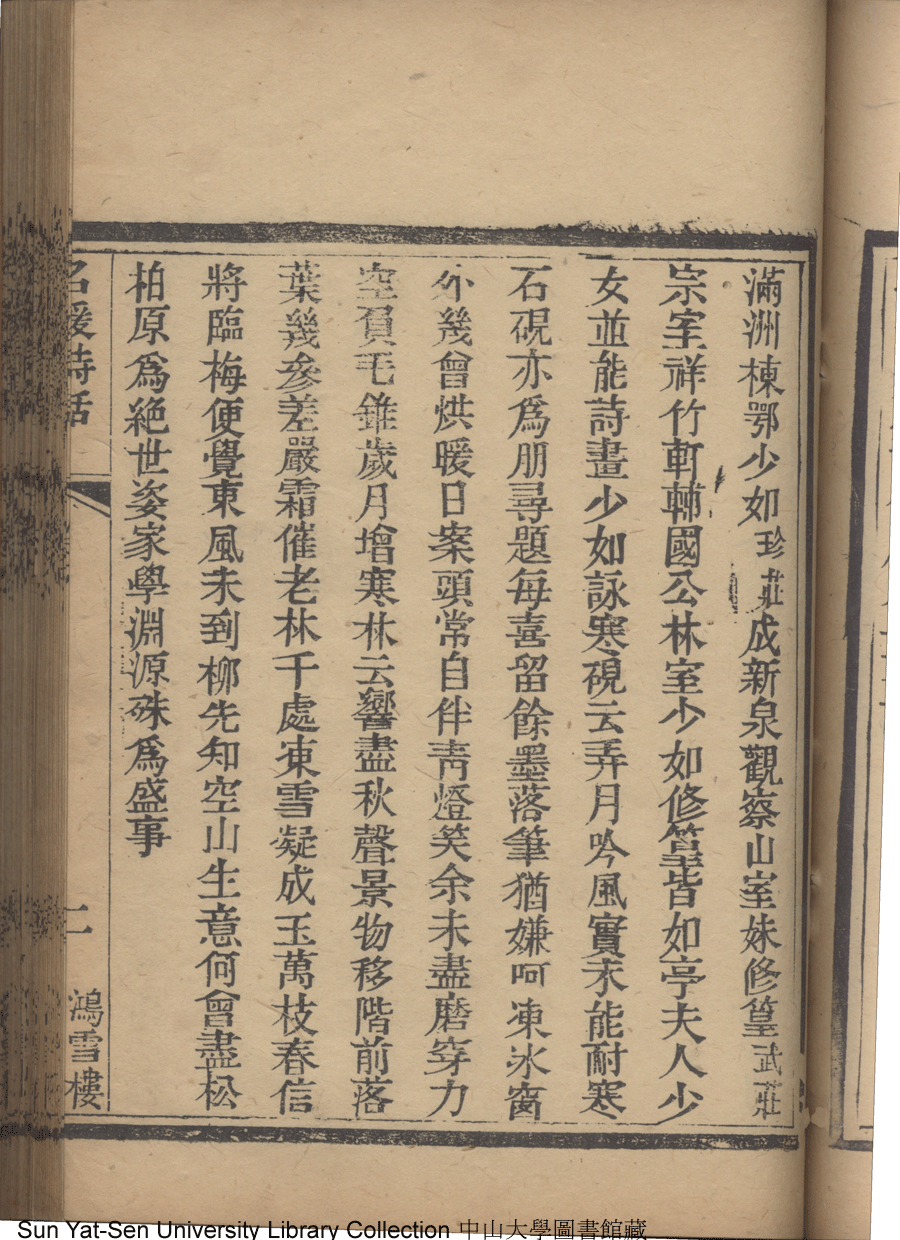 滿洲棟鄂少如珍莊成新泉觀察山室妹修篁武莊
宗室祥竹軒輔國公林室少如修篁皆如亭夫人少
女並能詩畫少如詠寒硯云弄月吟風實未能耐寒
石硯亦爲朋尋題每喜留餘墨落筆猶嫌呵凍氷窗
外幾曾烘暖日案頭常自伴靑燈笑余未盡磨穿力
空負毛錐歲月增寒林云響盡秋聲景物移階前落
葉幾參差嚴霜催老林千處凍雪凝成玉萬枝春信
將臨梅便覺東風未到柳先知空山生意何曾盡松
柏原爲絕世姿家學淵源殊爲盛事
名媛詩話
二
鴻雪樓
Sun Yat-Sen University Library Collection 中山大學圖書館藏